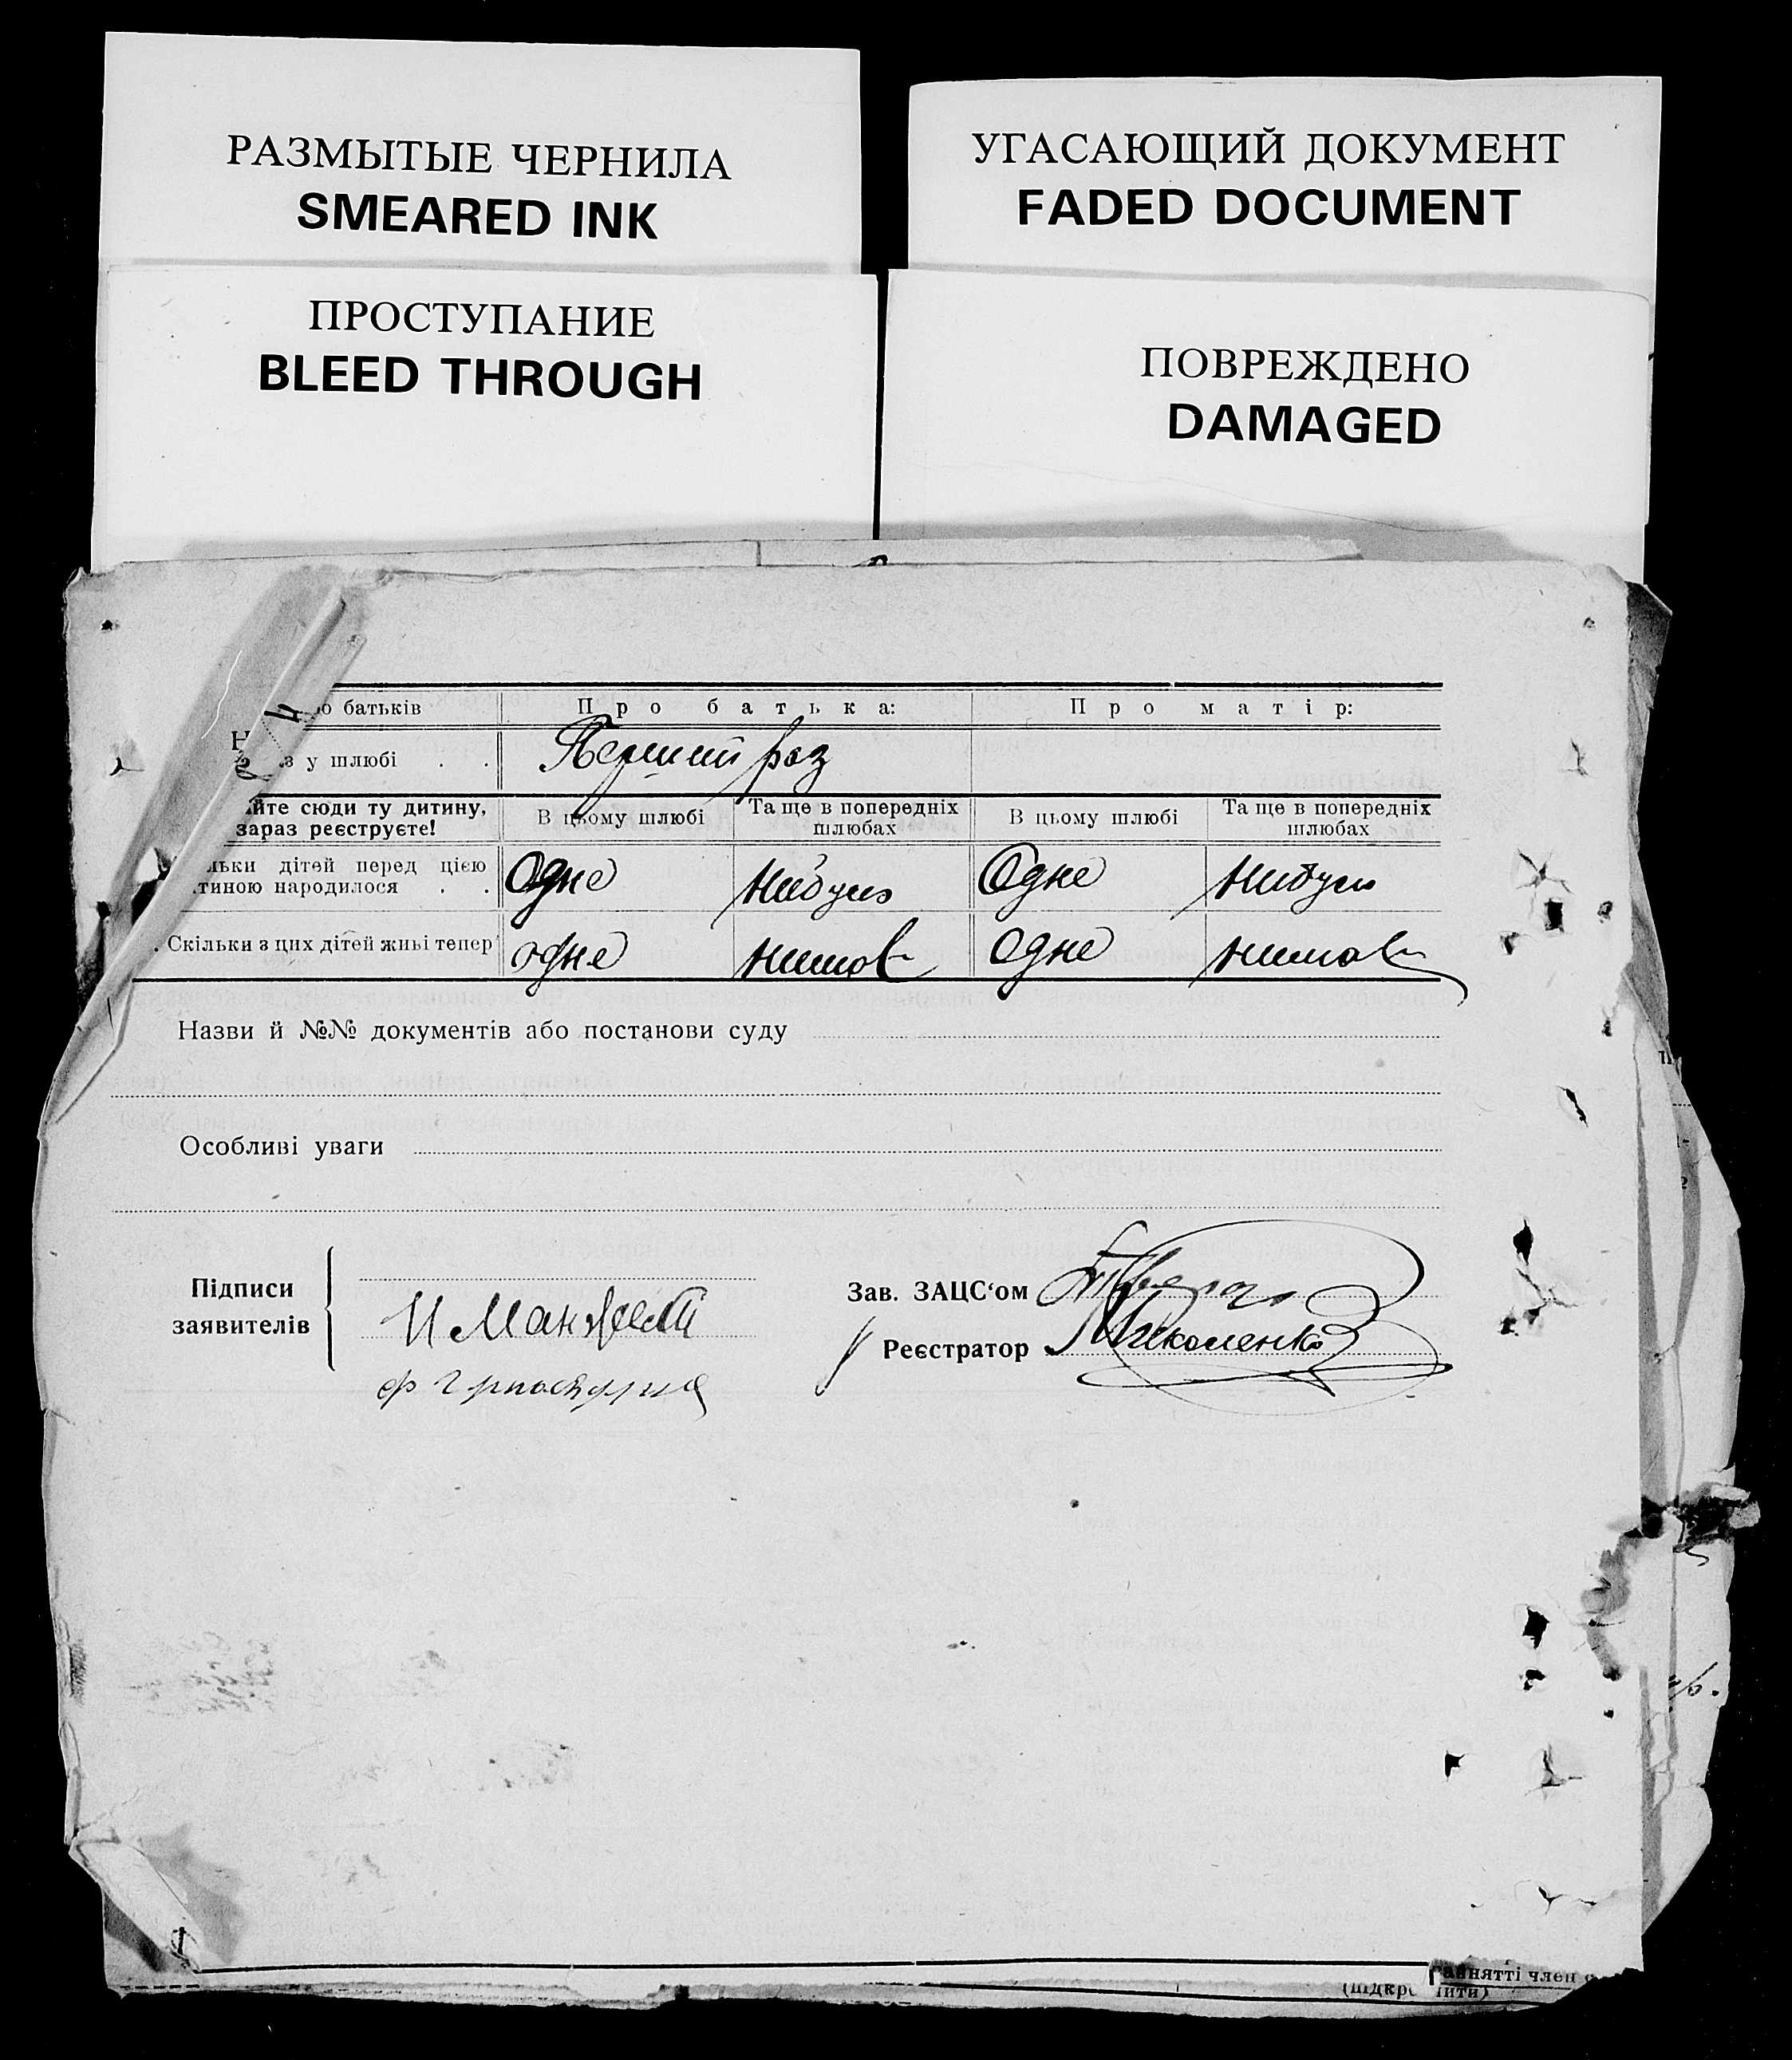 РАЗМЫТЫЕ ЧЕРНИЛА
SMEARED INK
УГАСАЮЩИЙ ДОКУМЕНТ
FADED DOCUMENT
ПРОСТУПАНИЕ
BLEED THROUGH
ПОВРЕЖДЕНО
DAMAGED
батьків
Про батька:
Про матір:
у шлюбі . .
Перший раз
йте сюди ту дитину,
зараз реєструєте!
В цьому шлюбі
Та ще в попередніх
шлюбах
В цьому шлюбі
Та ще в попередніх
шлюбах
льки дітей перед цією
тиною народилося . .
Одне
Нибуло
Одне
Нибуло
Скільки з цих дітей живі тепер
одне
Нимає
Одне
Нимає
Назви й №№ документів або постанови суду
Особливі уваги
Підписи
заявителів
И
Зав. ЗАЦС‘ом
Реєстратор
Николенко
нятті член
(підкр
ити)